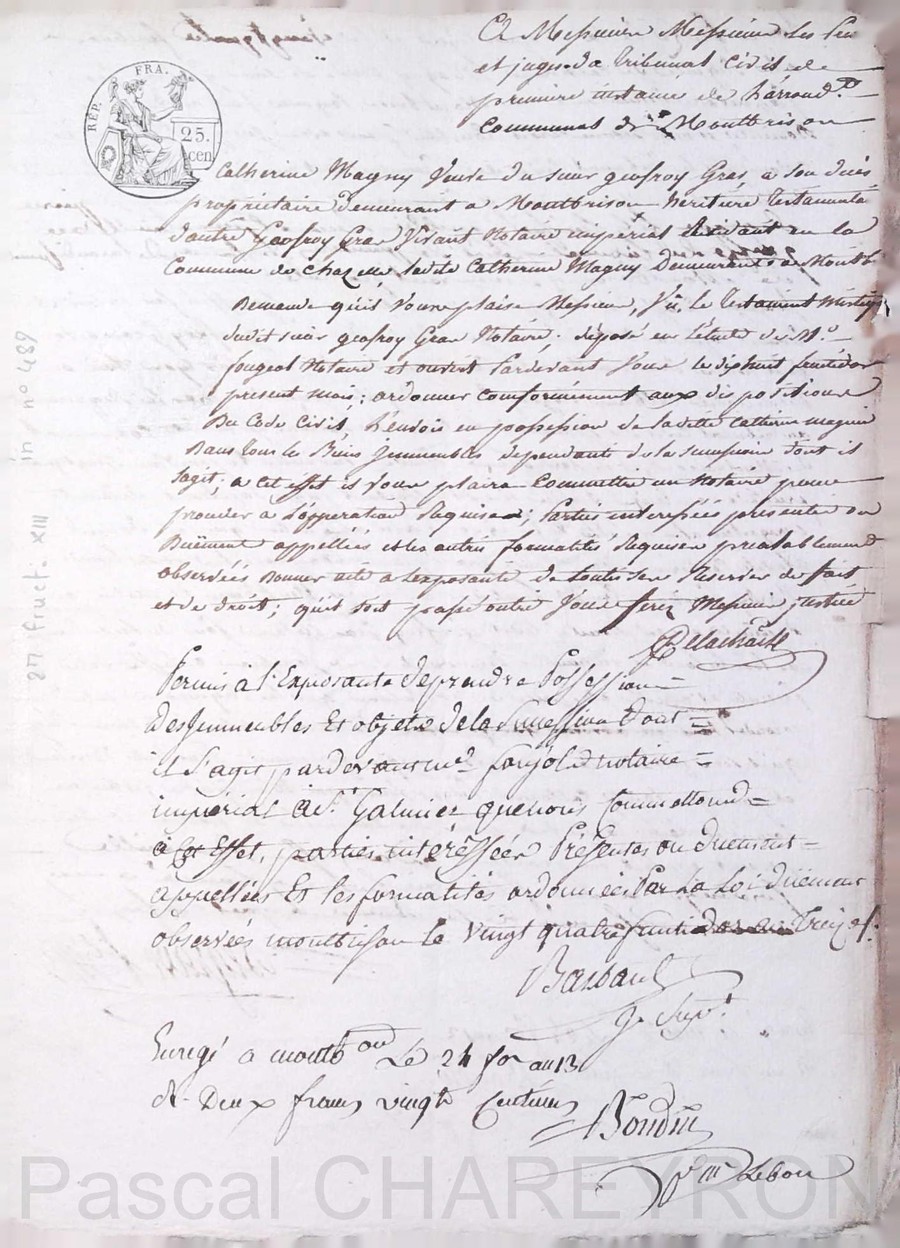 A Messieurs Messieurs Les
et juges du Tribunal Civil de
premiere instance de L'arrond.t
Communal de Montbrison
REP. FRA.
25.
cen
Catherine Magny Veuve du sieur geofroy Gras, a son deces
propriétaire demeurant a Montbrison heritiere Testamentaire
d'autre Geofroy Gras Vivant Notaire imperial Residant en la
Commune de Chazelle, ladite Catherine Magny Demeurante a Montb.
Demande qu'il Vous plaise Messieurs, Vu, le testament Mistiq
dudit sieur geofroy Gras Notaire. déposé en l'étude de M.e
fougeol Notaire et ouvert Pardevant Vous le dixhuit fructidor
present mois; ordonner conformément aux dispositions
Du Code Civil, L'envois en possession de ladite Catherine magnie
Dans tous les Biens Immeubles dependants de la succession dont il
sagit; a cet effet il Vous plaira Commettre un Notaire pour
proceder a L'opperation Requise; Parties interessées presentes ou
Duëment appellées et les autres formalités Requises prealablement
observées Donner acte a Lexposante de toutes ses Reserves de fait
et de droit; quoi soit passé outre Vous ferez Messieurs justice
Delachaise
Permis a l'Exposante de prendre Possession
Des Immeubles Et objets de la Succession Dont =
il S'agit, pardevant m.e foujols notaire =
impérial a S.t Galmier que nous Commettons =
a Cet Effet, parties intéressées Présentes ou duement =
appellées Et les formalités ordonnées Par La Loi düement
observées montbrison le Vingt quatre fructidor an Treize /.
Barban
J. Sup.t
Enregé a montb.on Le 24 for an 13
R. Deux francs vingt Centimes
Bondin
Lebon
27 fruct. XIII in n° 489
Pascal CHAREYRON